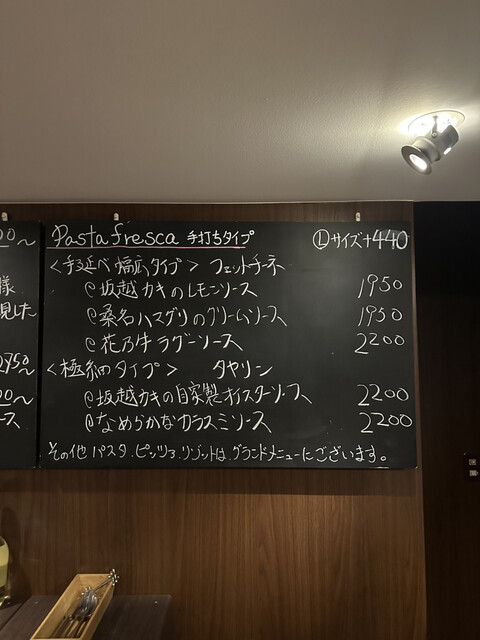 00〜
様
見した
2750〜
00〜
ース
Pasta fresca 手打ちタイプ Ⓛサイズ+440
<手延べ 幅広タイプ> フェットチーネ
@坂越カキのレモンソース 1950
@桑名ハマグリのクリームソース 1950
@花乃牛ラグーソース 2200
<極細タイプ> タヤリン
@坂越カキの自家製オイスターソース 2200
@なめらかなカラスミソース 2200
その他 パスタ.ピッツァ.リゾットは.グランドメニューにございます。